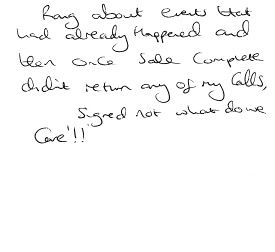 Rang about events that
had already Happened and
then once Sale Complete
didn't return any of my Calls,
Signed not what do we
Care'!!